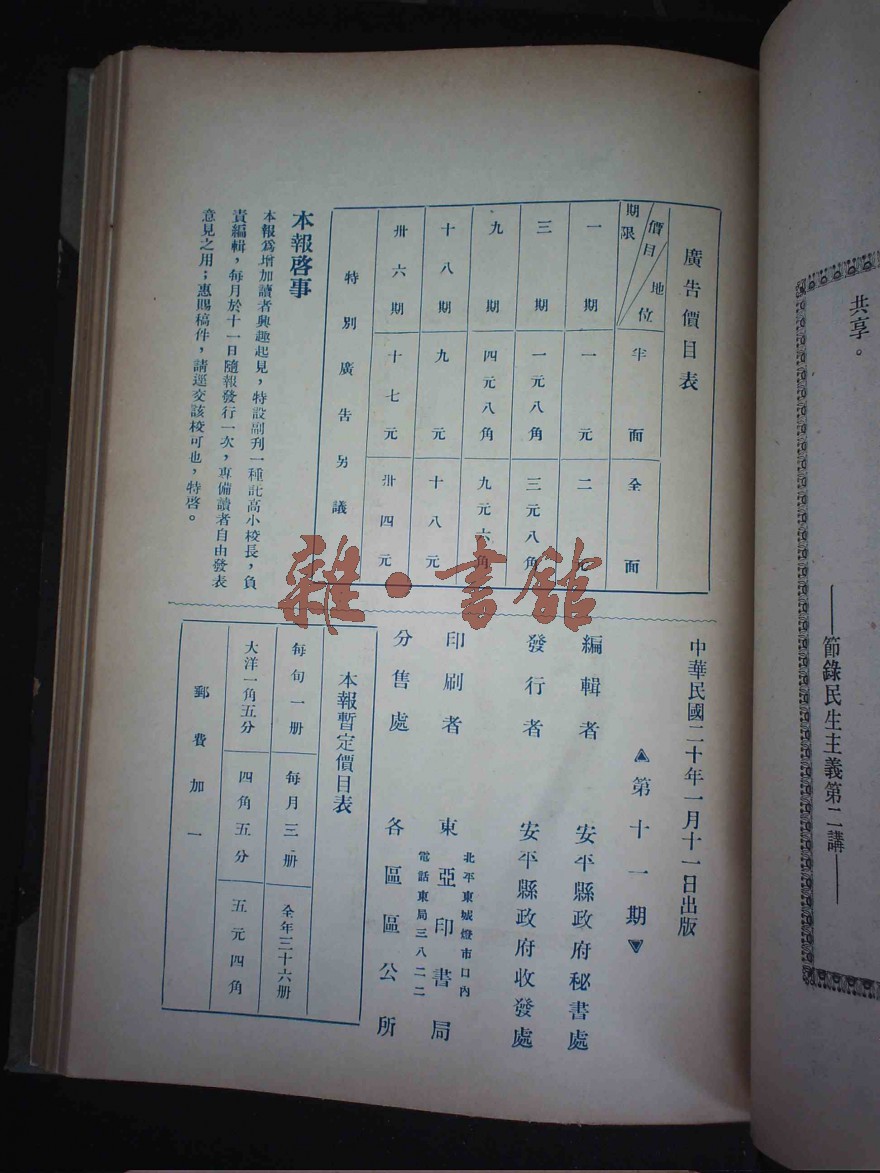 共享。
——節錄民生主義第二講——
廣告價目表
期限 價目 地位 半面 全面
一期 一元 二元
三期 一元八角 三元八角
九期 四元八角 九元六角
十八期 九元 十八元
卅六期 十七元 卅四元
特別廣告另議
本報啓事
本報爲增加讀者興趣起見,特設副刋一種託高小校長,負
責編輯,每月於十一日隨報發行一次,專備讀者自由發表
意見之用;惠賜稿件,請逕交該校可也,特啓。
中華民國二十年一月十一日出版
第十一期
編輯者 安平縣政府秘書處
發行者 安平縣政府收發處
印刷者 東亞印書局
北平東城燈市口內
電話東局三八二二
分售處 各區區公所
本報暫定價目表
每旬一册 每月三册 全年三十六册
大洋一角五分 四角五分 五元四角
郵費加一
雜·書館